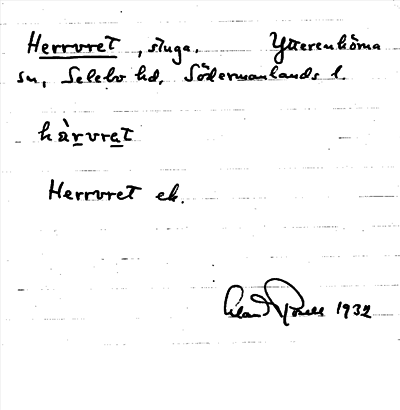 Herrvret, stuga. Ytterenhörna
sn, Selebo hd, Södermanlands l.
hà̀rvret
Herrvret ek.
1932